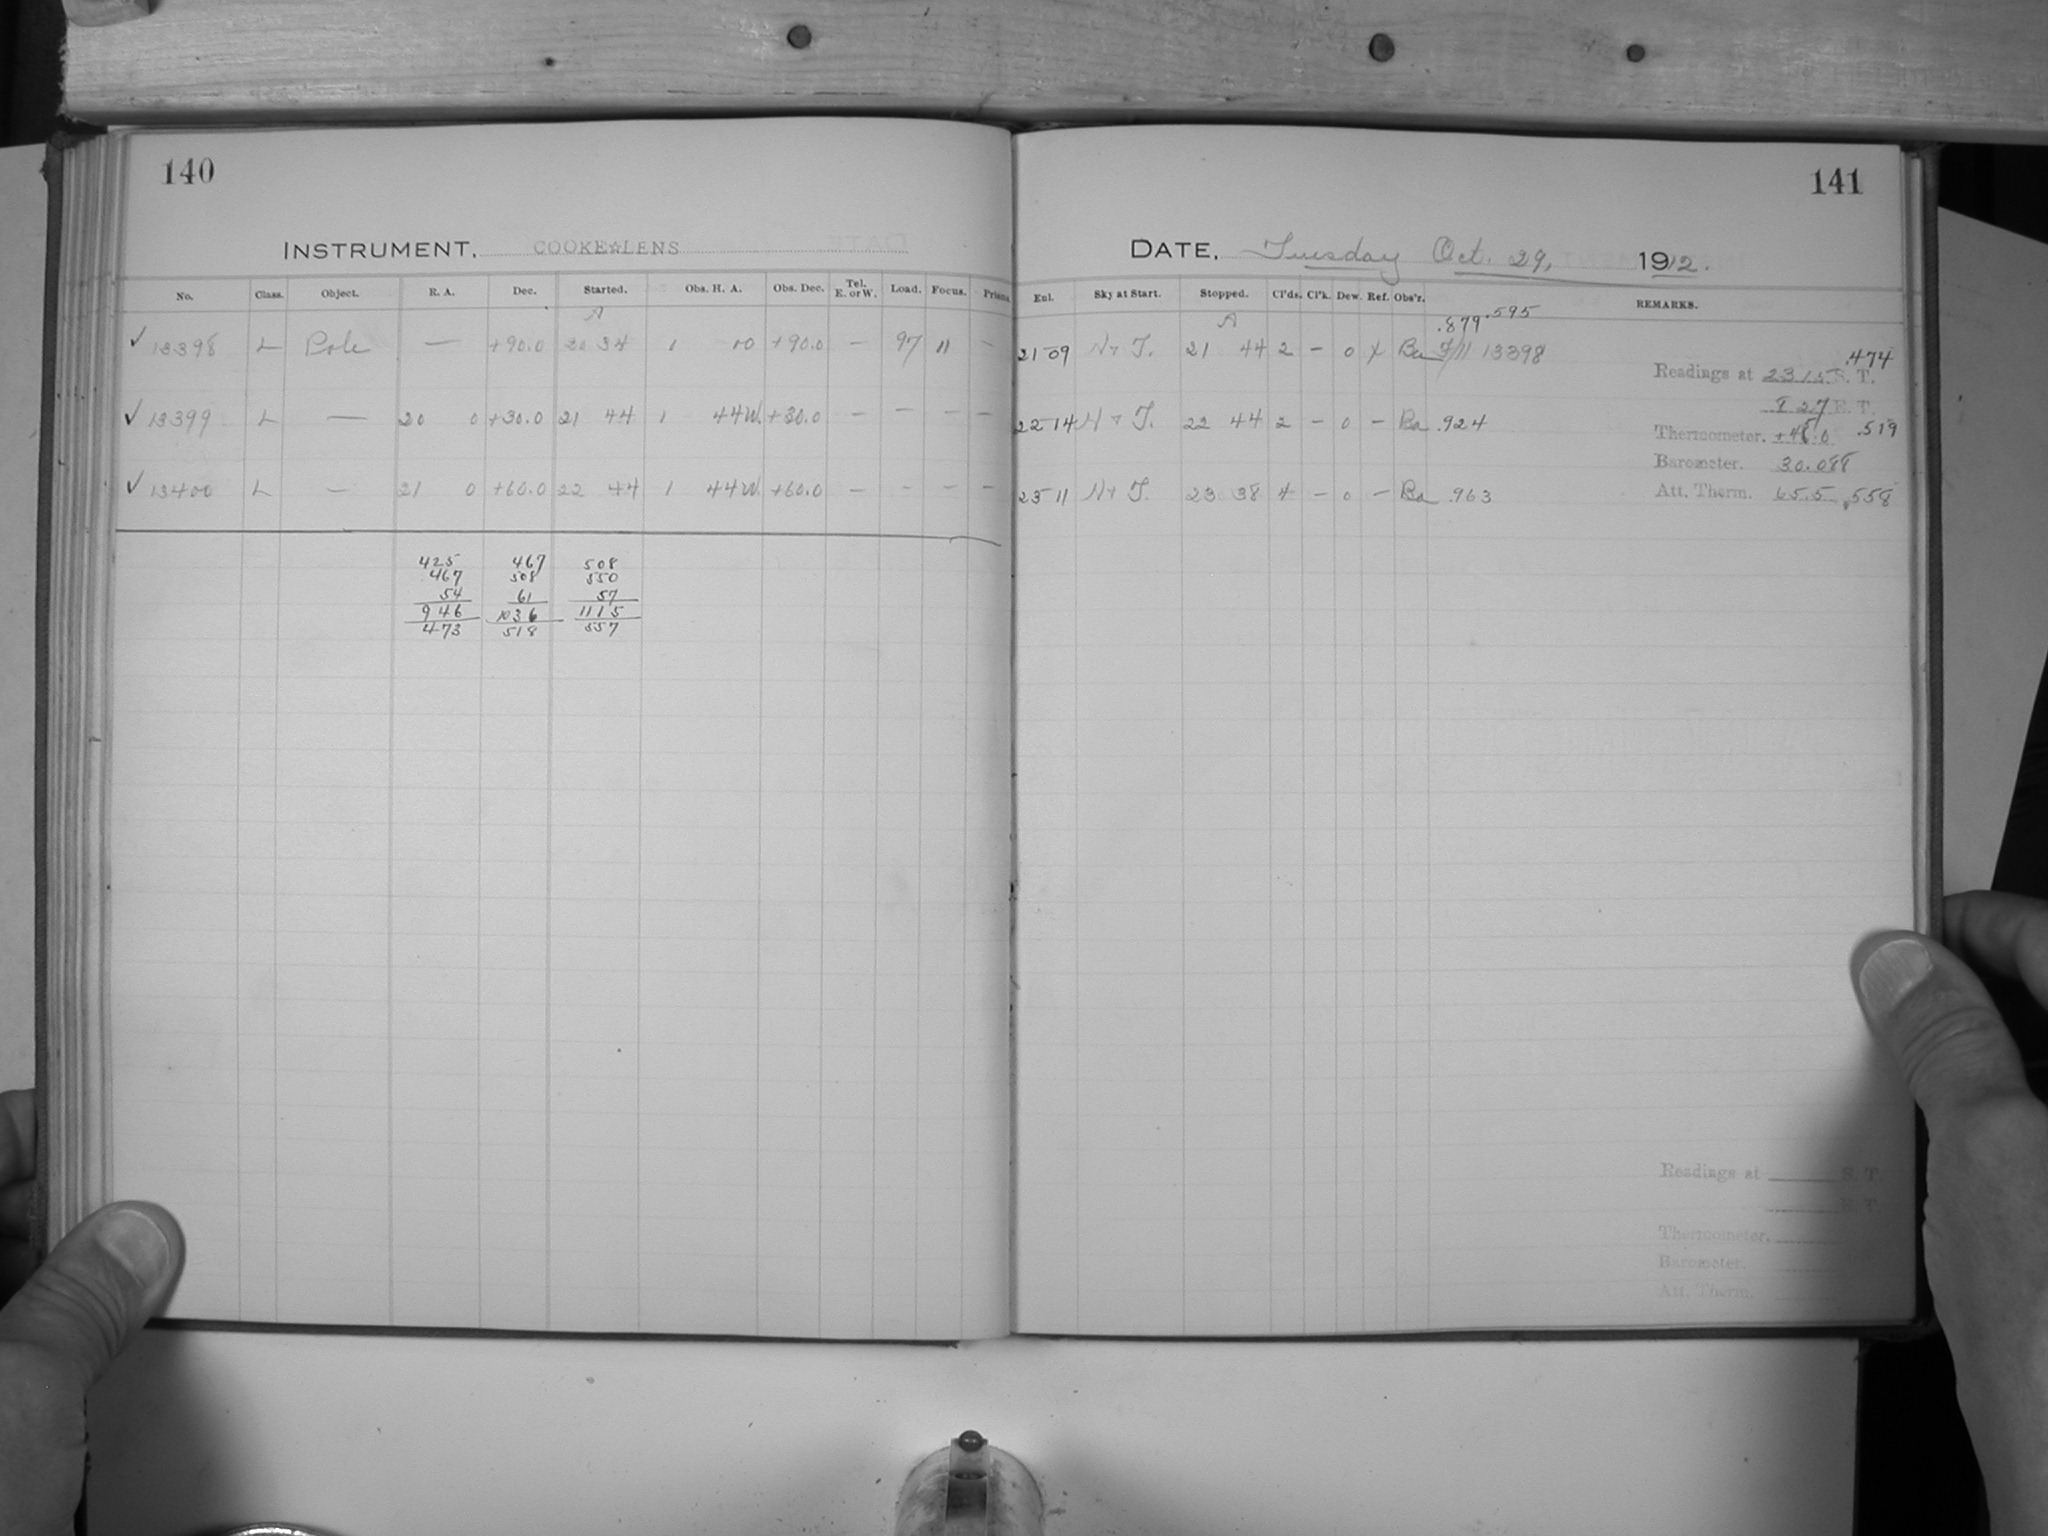 140
INSTRUMENT, COOKE☆LENS
No. Class. Object. R. A. Dec. Started. Obs. H. A. Obs. Dec. Tel. E. or W. Load. Focus. Prisms
A
✓ 13398 L Pole — +90.0 20 34 1 10 +90.0 — 97 11 —
✓ 13399 L — 20 0 +30.0 21 44 1 44W. +30.0 — — — —
✓ 13400 L — 21 0 +60.0 22 44 1 44W. +60.0 — — — —
425 467 508
467 508 550
54 61 57
946 1036 1115
473 518 557
141
DATE, Tuesday Oct. 29, 1912.
Exl. Sky at Start. Stopped. Cl'ds. Cl'k. Dew. Ref. Obs'r. REMARKS.
A .879 .595
21 09 N + T. 21 44 2 — 0 X Ba 7/11 13398
.474
Readings at 23 15 S. T.
22 14 N + T. 22 44 2 — 0 — Ba .924
27 E. T.
Thermometer, +46.0 .519
Barometer. 30.088
23 11 N + T. 23 38 4 — 0 — Ba .963
Att. Therm. 65.5 .558
Readings at S. T.
E. T.
Thermometer,
Barometer.
Att. Therm.